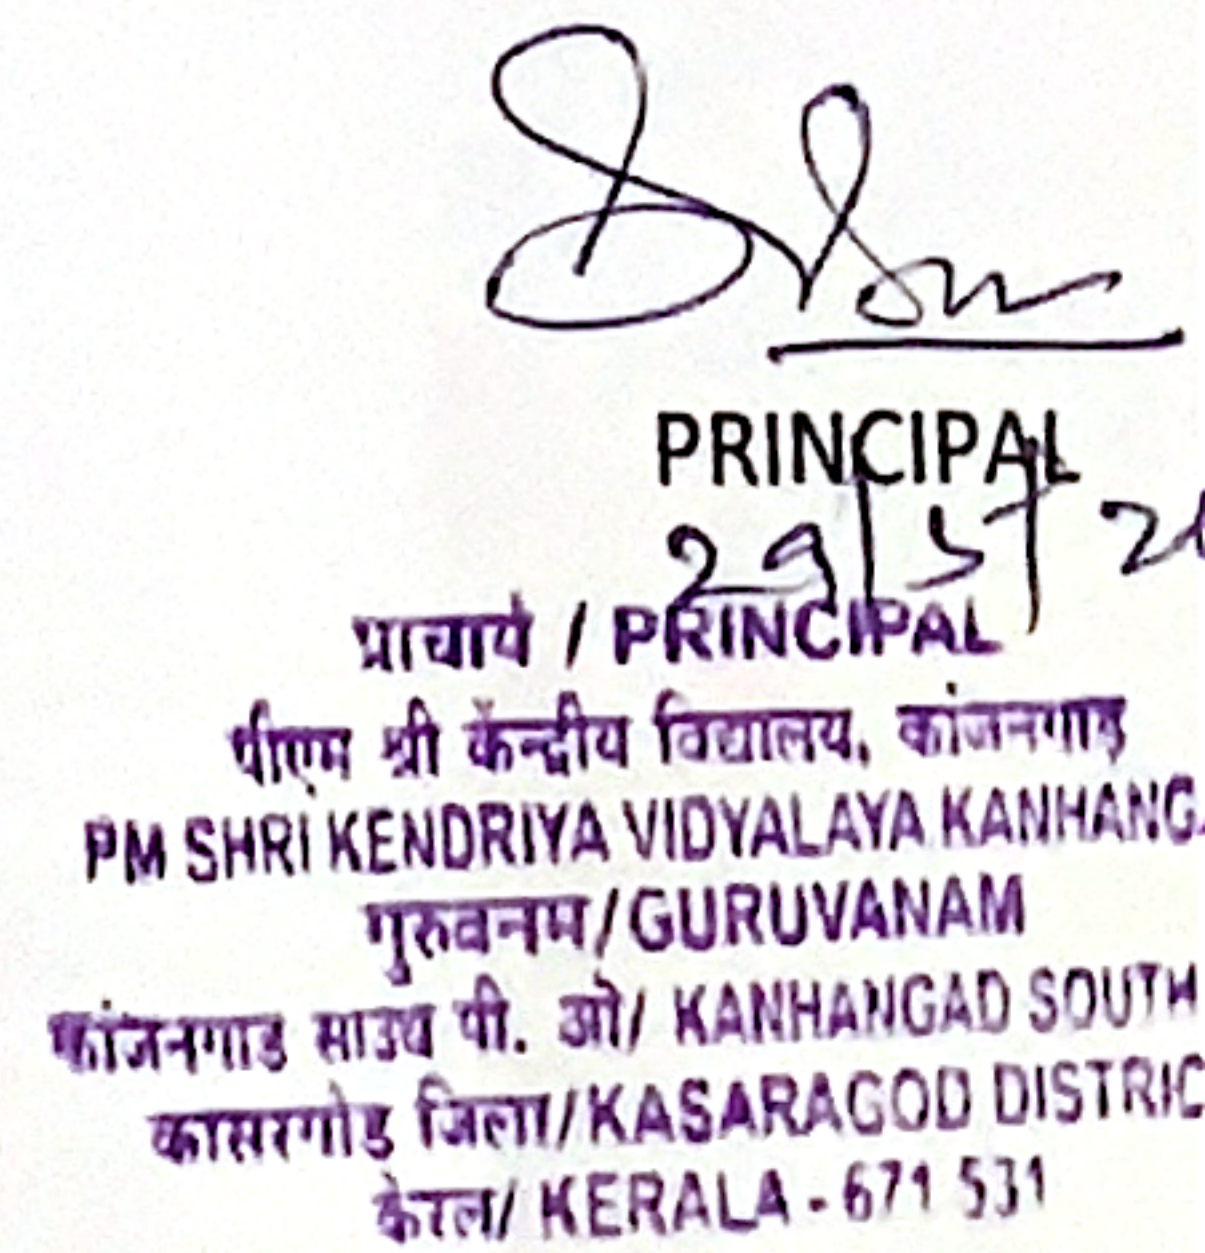 PRINCIPAL
29/5/2
प्राचार्य / PRINCIPAL
पीएम श्री केंन्द्रीय विद्यालय, कांजनगाड़
PM SHRI KENDRIYA VIDYALAYA KANHANG
गुरुवनम/GURUVANAM
कांजनगाड साउथ पी. ओ/ KANHANGAD SOUTH
कासरगोड जिला/KASARAGOD DISTRIC
केरल/ KERALA - 671 531